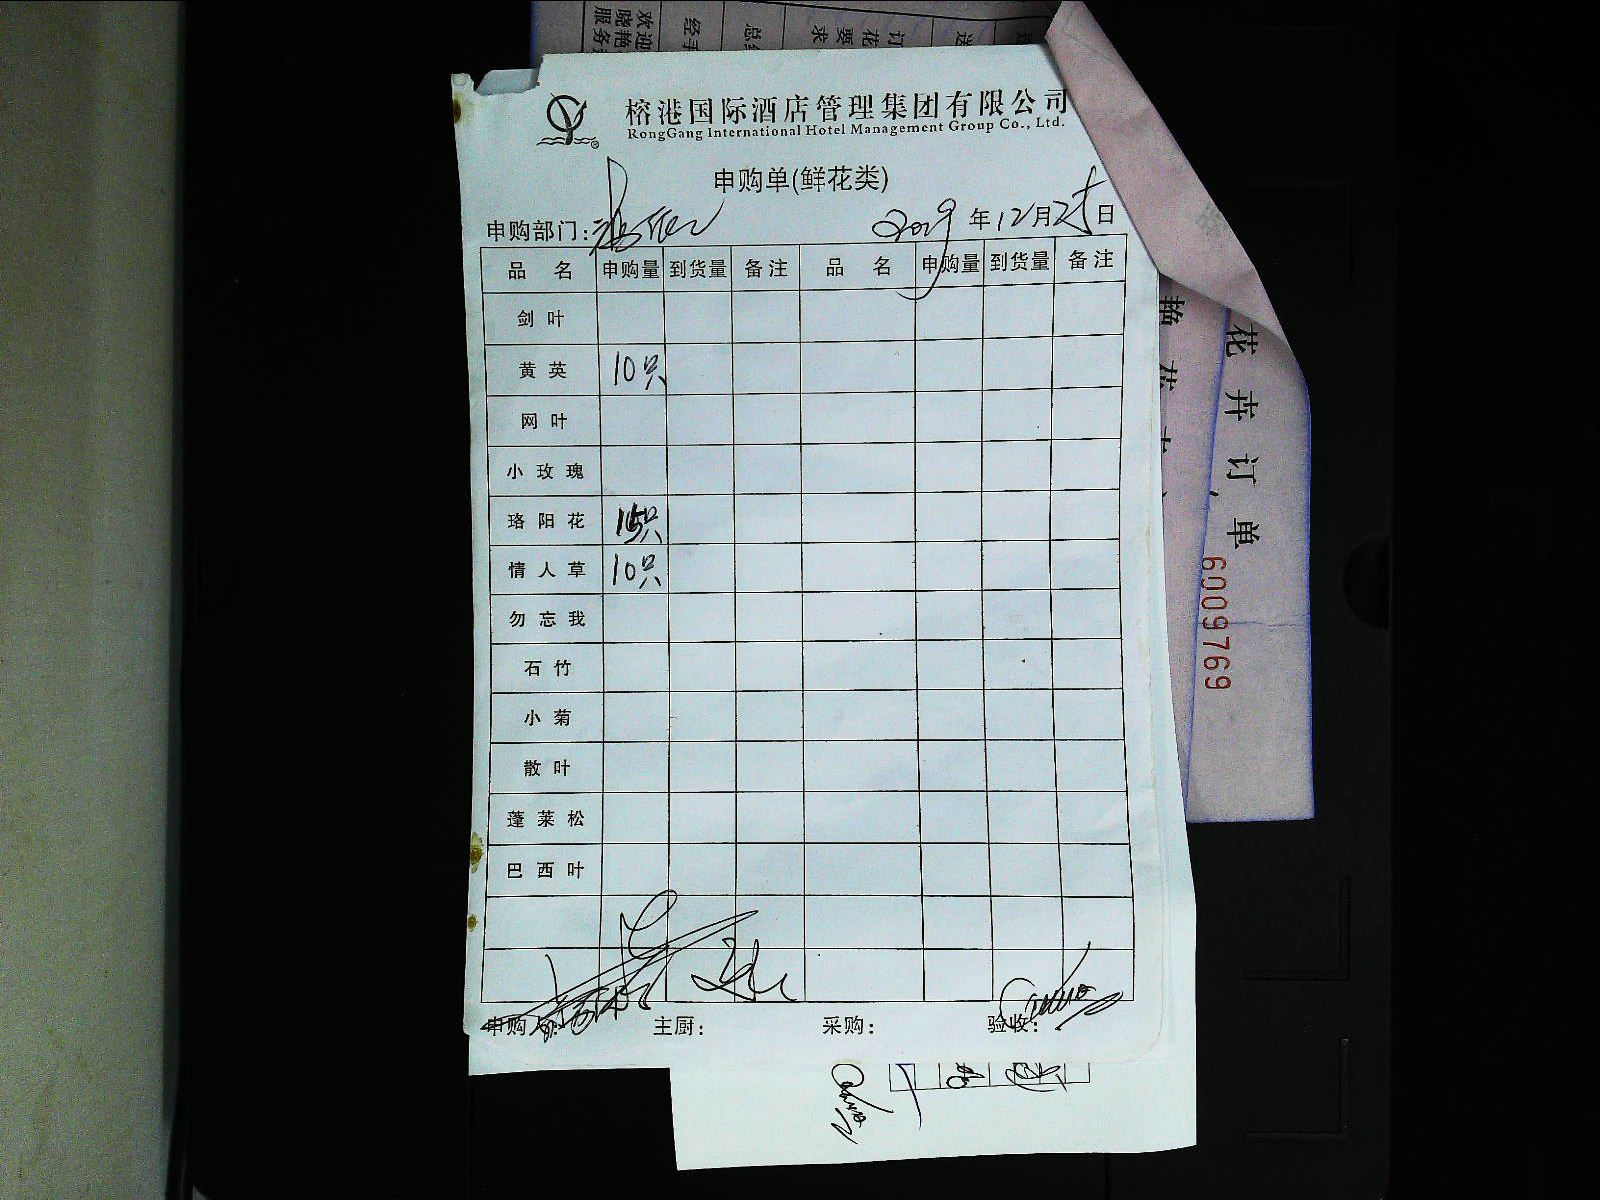 榕港国际酒店管理集团有限公司
RongGang International Hotel Management Group Co., Ltd.
申购单(鲜花类)
申购部门:
2019年12月25日
品名 申购量 到货量 备注 品名 申购量 到货量 备注
剑叶
黄英 10只
网叶
小玫瑰
珞阳花 15只
情人草 10只
勿忘我
石竹
小菊
散叶
蓬莱松
巴西叶
申购人: 主厨: 采购: 验收:
花卉订单
6009769
艳花
欢迎
晓艳
服务
经手
总
订花要求
送